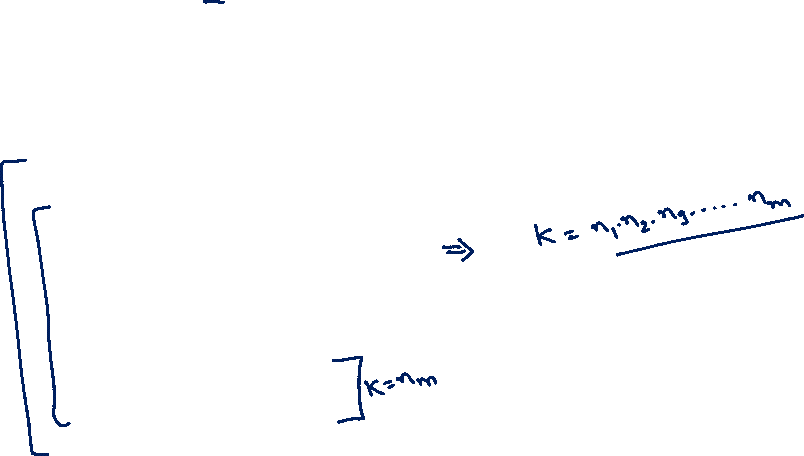 ⇒ K = n₁.n₂.n₃. .... nₘ
] K=nₘ